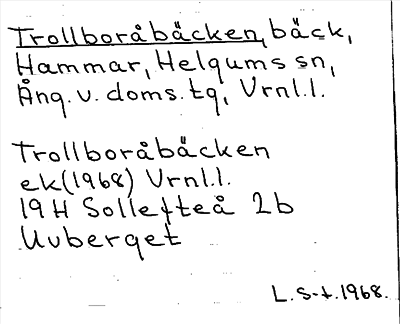 Trollboråbäcken, bäck,
Hammar, Helgums sn,
Ång. v. doms. tg, Vrnl.l.
Trollboråbäcken
ek(1968) Vrnl.l.
19H Sollefteå 2b
Uvberget
L. S-t. 1968.